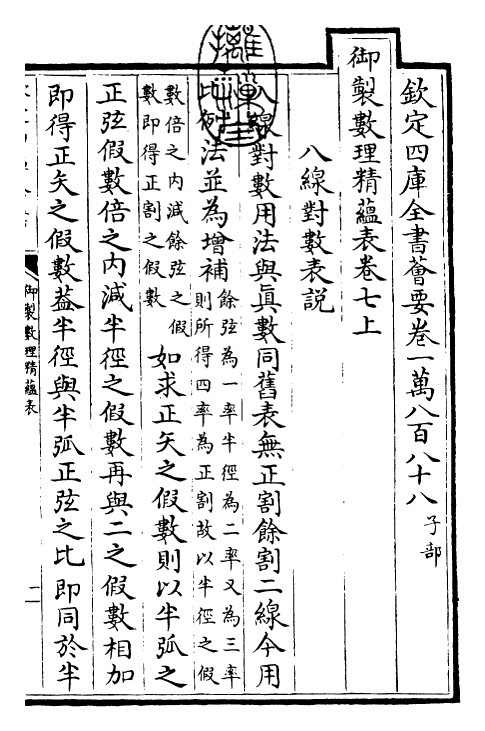 欽定四庫全書薈要卷一萬八百八十八 子部
御製數理精蘊表卷七上
八線對數表説
八線對數用法與眞數同舊表無正割餘割二線今用
比例法並為增補餘弦為一率半徑為二率又為三率則所得四率為正割故以半徑之假
數倍之内減餘弦之假數即得正割之假數如求正矢之假數則以半弧之
正弦假數倍之内減半徑之假數再與二之假數相加
即得正矢之假數葢半徑與半弧正弦之比即同於半
御製數理精蘊表
一